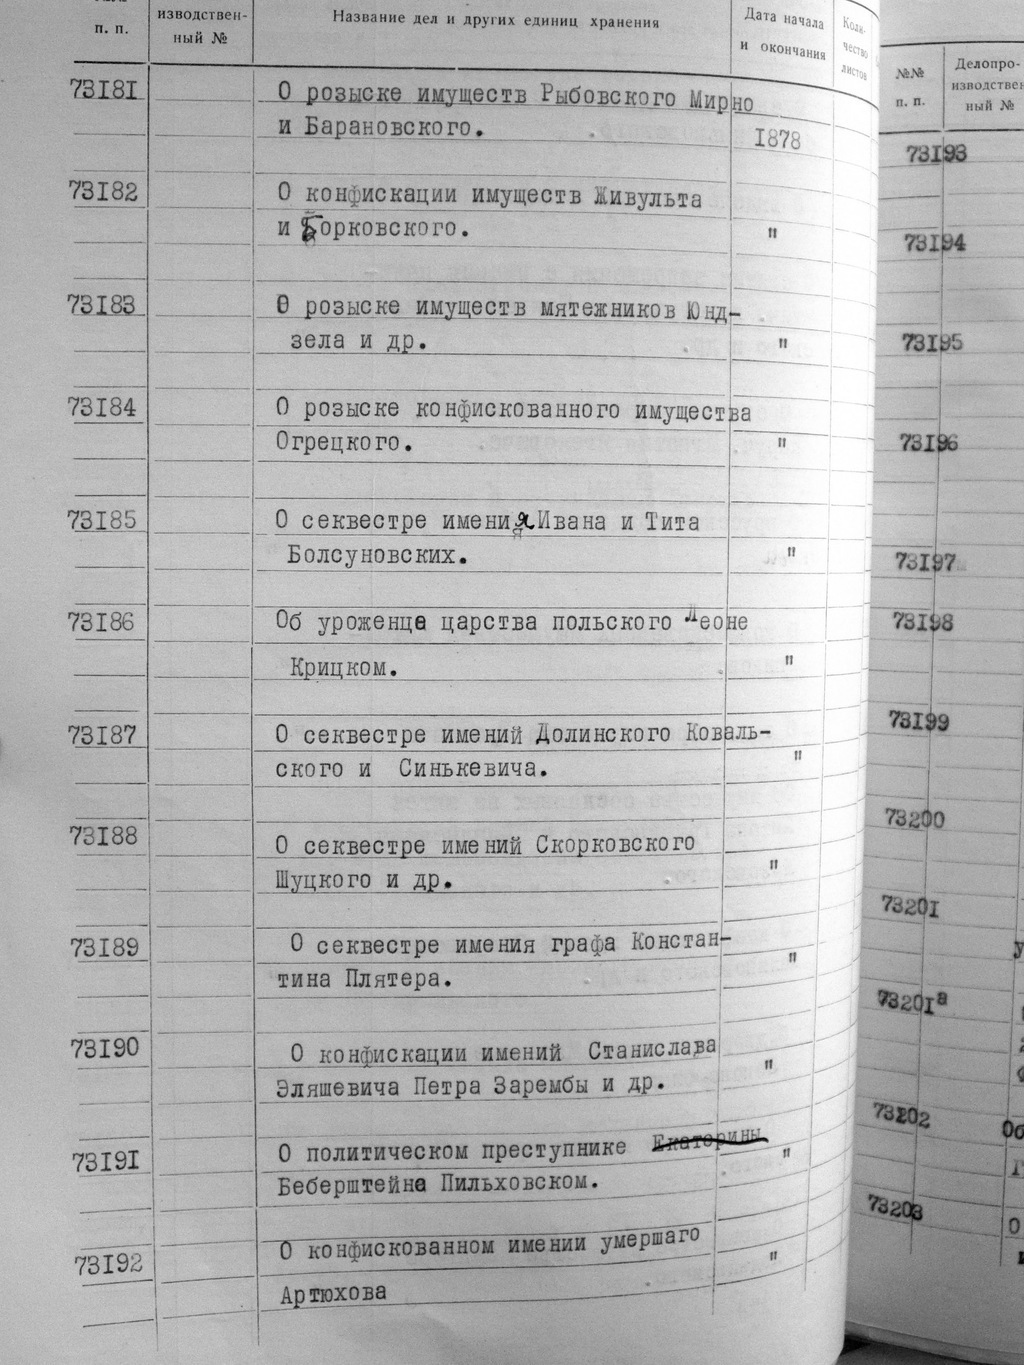 изводствен-
п. п.
ный №
Название дел и других единиц хранения
Дата начала
и окончания
Коли-
чество
листов
73181
О розыске имуществ Рыбовского Мирно
и Барановского.
1878
73182
О конфискации имуществ Живульта
и Борковского.
"
73183
О розыске имуществ мятежников Юнд-
зела и др.
"
73184
О розыске конфискованного имущества
Огрецкого.
"
73185
О секвестре имения Ивана и Тита
Болсуновских.
"
73186
Об уроженце царства польского Леоне
Крицком.
"
73187
О секвестре имений Долинского Коваль-
ского и Синькевича.
"
73188
О секвестре имений Скорковского
Шуцкого и др.
"
73189
О секвестре имения графа Констан-
тина Плятера.
"
73190
О конфискации имений Станислава
Эляшевича Петра Зарембы и др.
"
73191
О политическом преступнике Екатерины
Беберштейна Пильховском.
"
73192
О конфискованном имении умершаго
Артюхова
"
№№
п. п.
Делопро-
изводствен
ный №
73193
73194
73195
73196
73197
73198
73199
73200
73201
у
73201а
73202
Об
73203
О